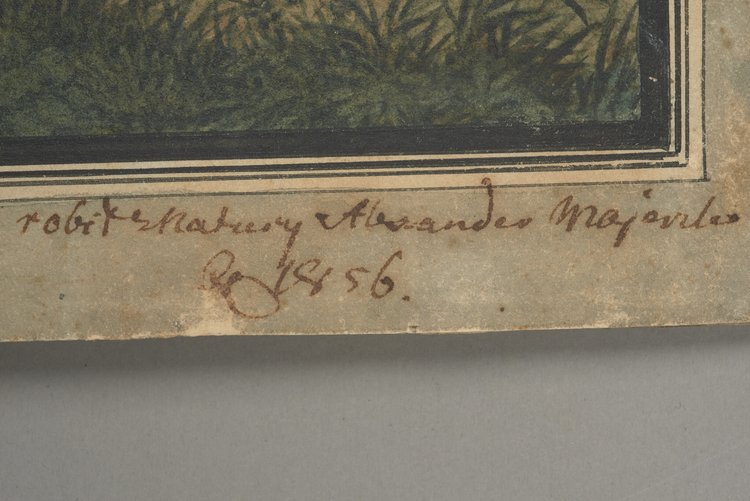 robił z Natury Alexander Majewski
R 1856.